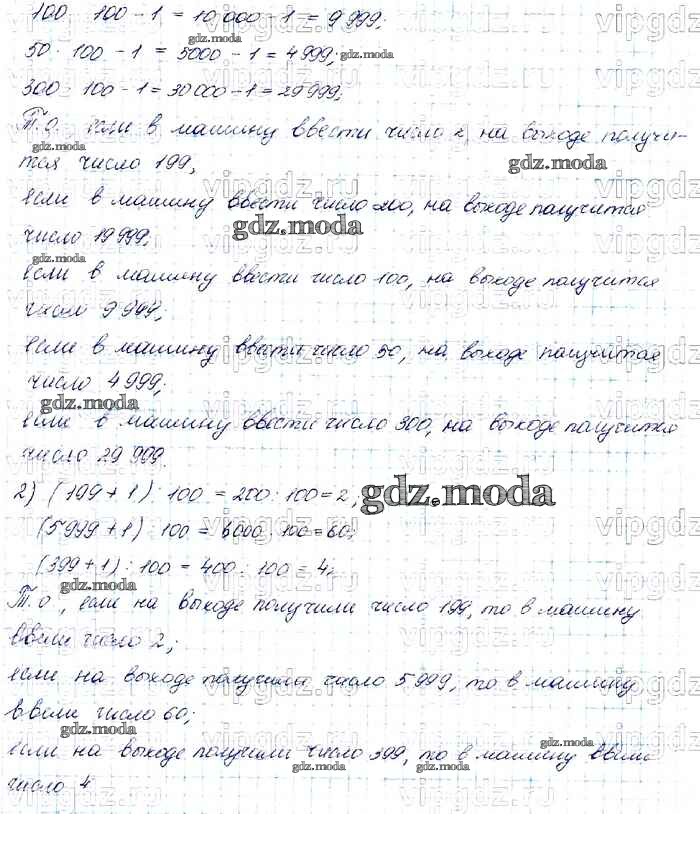 100 · 100 - 1 = 10 000 - 1 = 9 999;
50 · 100 - 1 = 5000 - 1 = 4 999;
300 · 100 - 1 = 30 000 - 1 = 29 999;
Т.о. если в машину ввести число 2, на выходе получи-
тся число 199,
если в машину ввести число 200, на выходе получится
число 19 999;
если в машину ввести число 100, на выходе получится
число 9 999,
если в машину ввести число 50, на выходе получится
число 4 999;
если в машину ввести число 300, на выходе получится
число 29 999.
2) (199 + 1) : 100 = 200 : 100 = 2;
(5 999 + 1) : 100 = 6000 : 100 = 60;
(399 + 1) : 100 = 400 : 100 = 4.
Т.о, если на выходе получили число 199, то в машину
ввели число 2;
если на выходе получили число 5 999, то в машину
ввели число 60;
если на выходе получили число 399, то в машину ввели
число 4
gdz.moda
vipgdz.ru